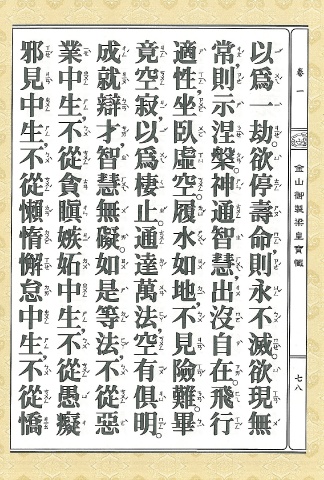 卷一
金山御製梁皇寶懺
七八
以爲一劫。欲停壽命，則永不滅。欲現無
常，則示涅槃。神通智慧，出沒自在，飛行
適性，坐臥虛空。履水如地，不見險難。畢
竟空寂，以爲棲止。通達萬法，空有俱明。
成就辯才，智慧無礙。如是等法，不從惡
業中生，不從貪瞋嫉妬中生，不從愚癡
邪見中生，不從懶惰懈怠中生，不從憍